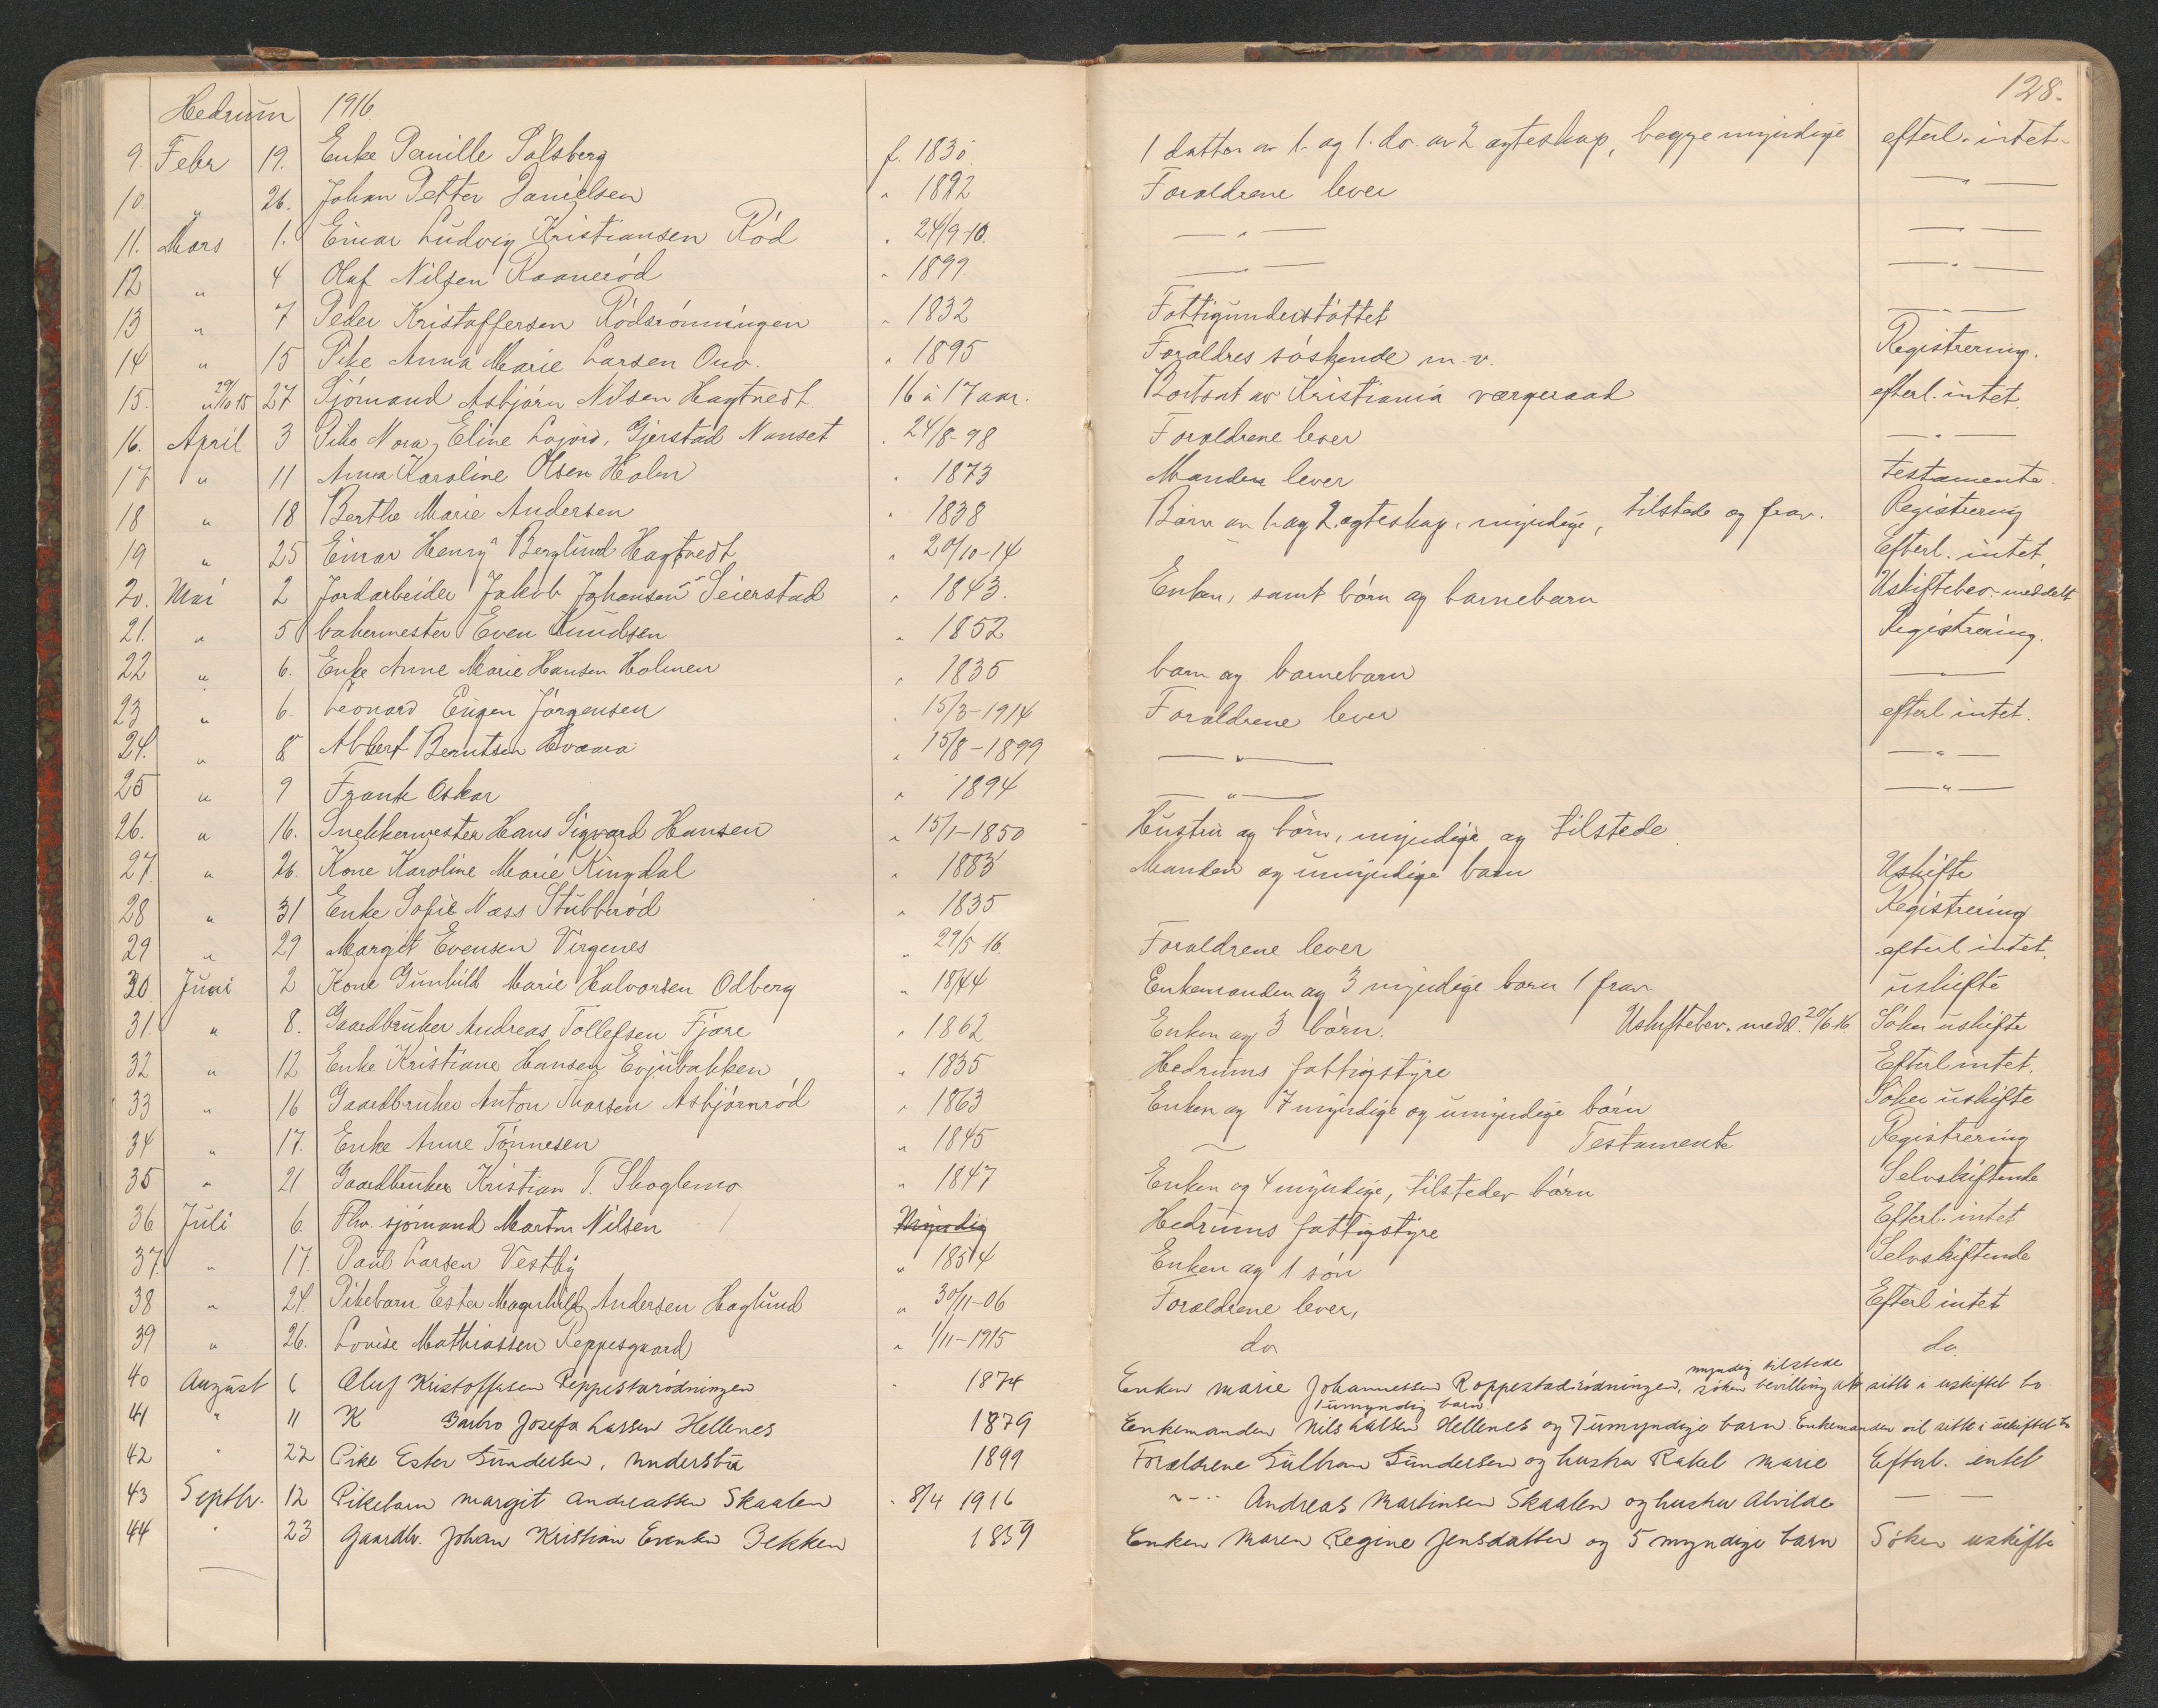 128.
Hedrum 1916.
9. Febr 19. Enke Pernille Solsberg f. 1830. 1 datter av 1. og 1. do. av 2 ægteskap, begge myndige efterl. intet.
10. " 26. Johan Petter Danielsen " 1892 Forældrene lever — " —
11. Mars 1. Einar Ludvig Kristiansen Ród " 24/9-10. — " — — " —
12 " 4 Oluf Nilsen Raaneród " 1899 — " — — " —
13 " 7 Peder Kristoffersen Ródsrónningen " 1832 Fattigunderstóttet — " —
14 " 15 Pike Anna Marie Larsen Ono. " 1895 Forældres sóskende m.v. Registrering.
15. " 29/10 15 27 Sjómand Asbjórn Nilsen Hagtvedt 16 à 17 aar. Bortsat av Kristiania værgeraad efterl. intet.
16. April 3 Pike Nora, Eline Gjerstad Nanset " 24/8-98 Forældrene lever — " —
17 " 11 Anna Karoline Olsen Holm " 1873 Manden lever testamente.
18 " 18 Berthe Marie Andersen " 1838 Bórn av 1. og 2. ægteskap, myndige, tilstede og frav. Registrering
19 " 25 Einar Henry Berglund Hagtvedt " 20/10-14 — Efterl. intet.
20. Mai 2 Jordarbeider Jakob Johansen Seierstad " 1843. Enken, samt bórn og barnebarn Uskiftebev. meddelt
21. " 5 bakermester Even Knudsen " 1852 Registrering.
22 " 6. Enke Anne Marie Hansen Holmen " 1835 barn og barnebarn — " —
23 " 6. Leonard Eugen Jórgensen " 15/3-1914 Forældrene lever efterl intet.
24. " 8 Albert Berntsen Kvaara " 15/8-1899 — " — — " —
25 " 9 Frank Oskar " 1894 — " — — " —
26. " 16. Snekkermester Hans Sigvard Hansen " 15/1-1850 Hustru og bórn, myndige og tilstede.
27. " 26. Kone Karoline Marie Ringdal " 1883 Manden og umyndige barn Uskifte
28 " 31 Enke Sofie Næss Stubberód " 1835 Registrering
29 " 29 Margit Evensen Virgenes " 29/5 16. Forældrene lever efterl intet.
30 Juni 2 Kone Gunhild Marie Halvorsen Odberg " 1844 Enkemanden og 3 myndige barn 1 frav uskifte
31. " 8. Gaardbruker Andreas Tollefsen Fjære " 1862 Enken og 3 bórn. Uskiftebev. medd. 20/6 16. Sóker uskifte
32 " 12 Enke Kristiane Hansen Evjubakken " 1835 Hedrums fattigstyre Efterl intet.
33 " 16 Gaardbruker Anton Thorsen Asbjórnród " 1863 Enken og 7 myndige og umyndige bórn Sóker uskifte
34 " 17. Enke Anne Tónnesen " 1845 — Testamente Registrering
35 " 21 Gaardbruker Kristian T. Skoglemo " 1847 Enken og 4 myndige, tilstedev bórn Selvskiftende
36 Juli 6. Fhv. sjómand Martin Nilsen Myndig Hedrums fattigstyre Efterl. intet
37. " 17. Paul Larsen Vestby " 1854 Enken og 1 són Selvskiftende
38 " 24. Pikebarn Ester Magnhild Andersen Haglund " 30/11-06 Forældrene lever, Efterl intet
39 " 26. Lovise Mathiassen Reppesgaard " 1/11-1915 do do.
myndig tilstede
40 August 6 Oluf Kristoffersen Reppestarødningen " 1874 Enken Marie Johannessen Roppestadrødningen, søker bevilling at sitte i uskiftet bo
1 umyndig barn.
41 " 11 K Barbro Josefa Larsen Hellenes 1879 Enkemanden Nils Larsen Hellenes og 7 umyndige barn. Enkemanden vil sitte i uskiftet bo
42 " 22 Pike Ester Gundersen, 1899 Forældrene Gundersen og hustru Rakel Marie Efterl. intet
43 Septbr. 12 Pikebarn Margit Andreassen Skaalen " 8/4 1916 — " — Andreas Martinsen Skaalen og hustru Alvilde — " —
44 " 23 Gaardbr. Johan Kristian Evensen Bekken 1859 Enken Maren Regine Jensdatter og 5 myndige barn Søker uskifte